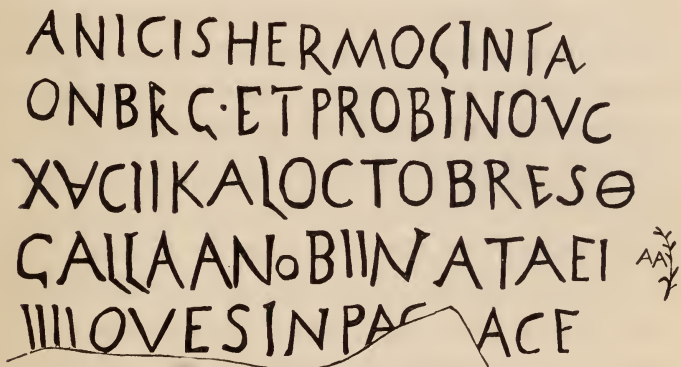 ANICISHERMOGINIA
ONBRG·ETPROBINOVC
XVCIIKALOCTOBRESΘ
GALLAANOBIINATAEI AA
IIIIOVESINPAC ACE